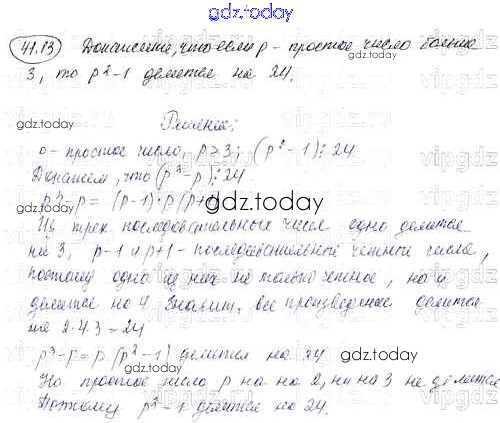 gdz.today
41.13 Докажите, что если p - простое число больше
3, то p²-1 делится на 24.
gdz.today
Решение:
p - простое число, p > 3; (p²-1)⋮24
Докажем, что (p³-p)⋮24.
p³-p = (p-1)·p(p+1)
gdz.today
Из трех последовательных чисел одно делится
на 3, p-1 и p+1 - последовательные четные числа,
поэтому одно из них не только четное, но и
делится на 4. Значит, все произведение делится
на 2·4·3=24
p³-p=p(p²-1) делится на 24
Но простое число p на на 2, ни на 3 не делится
Поэтому p²-1 делится на 24.
gdz.today
gdz.today
gdz.today
gdz.today
gdz.today
gdz.today
gdz.today